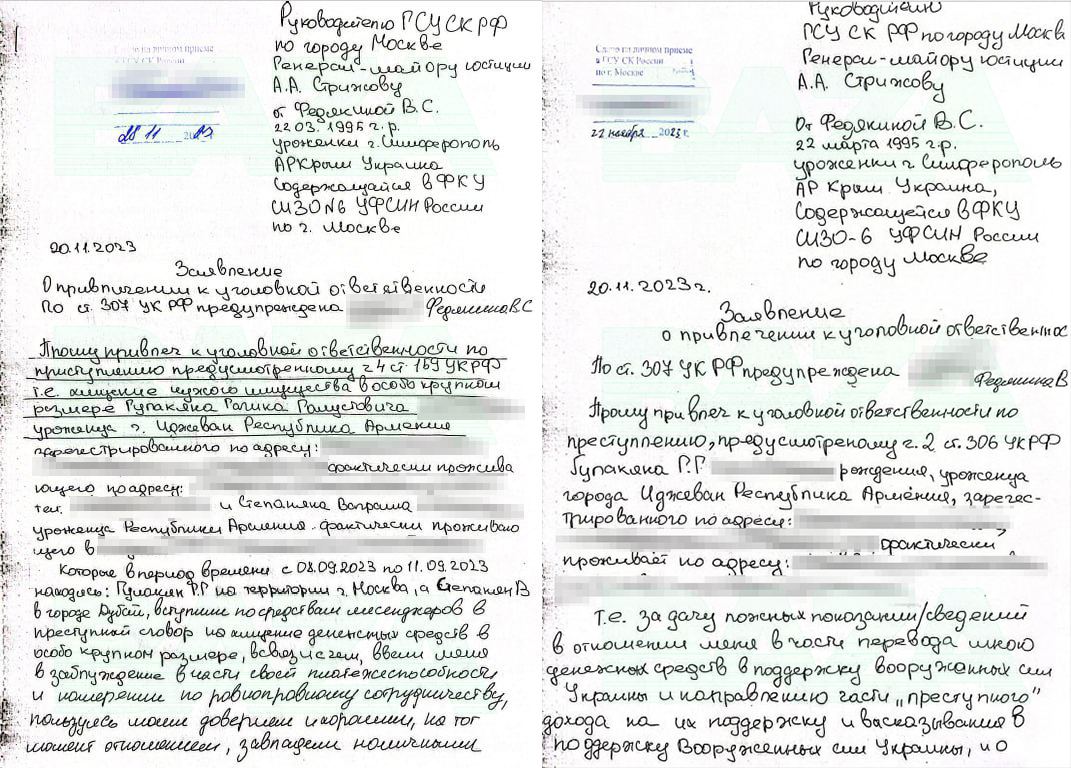 Сдано на личном приеме
в ГСУ СК России
28 11 2023
Руководителю ГСУ СК РФ
по городу Москве
Генерал-майору юстиции
А.А. Стрижову
от Федякиной В.С.
22.03.1995 г.р.
уроженки г. Симферополь
АР Крым Украина
Содержащайся в ФКУ
СИЗО №6 УФСИН России
по г. Москве
20.11.2023
Заявление
О привличении к уголовной ответственности
По ст. 307 УК РФ предупреждена Федякина В С
Прошу привлеч к уголовной ответственности по
приступлению предусмотренному ч 4 ст. 159 УК РФ
т.е. хищение чужого имущества в особо крупном
размере Гупакяна Рагика Рамустовича
уроженца г. Иджеван Республика Армения
зарегистрированного по адресу:
фактически прожива
ющего по адресу:
тел. и Степаняна Ваграма
уроженца Республики Армения фактически проживаю
щего в
Которые в период времени с 08.09.2023 по 11.09.2023
находясь: Гупакян Р.Г на территории г. Москва, а Степанян В
в городе Дубай, вступили посредствам месенджеров в
преступный сговор на хищение денежных средств в
особо крупном размере, в связи с чем, ввели меня
в заблуждение в части своей платежеспособности
и намерении по равноправному сотрудничеству,
пользуясь моим доверием и хорошим, на тот
момент отношением, завладели наличными
Руководителю
ГСУ СК РФ по городу Москв
Генерал-майору юстиции
А.А. Стрижову
Сдано на личном приеме
в ГСУ СК России
по г. Москве
22 ноября 2023 г.
От Федякиной В.С.
22 марта 1995 г.р.
уроженки г Симферополь
АР Крым Украина,
Содержащейся в ФКУ
СИЗО-6 УФСИН России
по городу Москве
20.11.2023 г.
Заявление
о привлечении к уголовной ответственнос
По ст. 307 УК РФ предупреждена
Федякина В
Прошу привлеч к уголовной ответственности по
преступлению, предусмотреному ч. 2 ст. 306 УК РФ
Гупакяна Р.Г рождения, уроженца
города Иджеван Республика Армения, зарегес-
трированного по адресу:
фактически,
проживает по адресу:
Т.е. за дачу ложных показании/сведений
в отношении меня в части перевода мною
денежных средств в поддержку вооруженных сил
Украины и направлению части „преступного"
дохода на их поддержку и высказывания в
поддержку Вооруженных сил Украины, и о